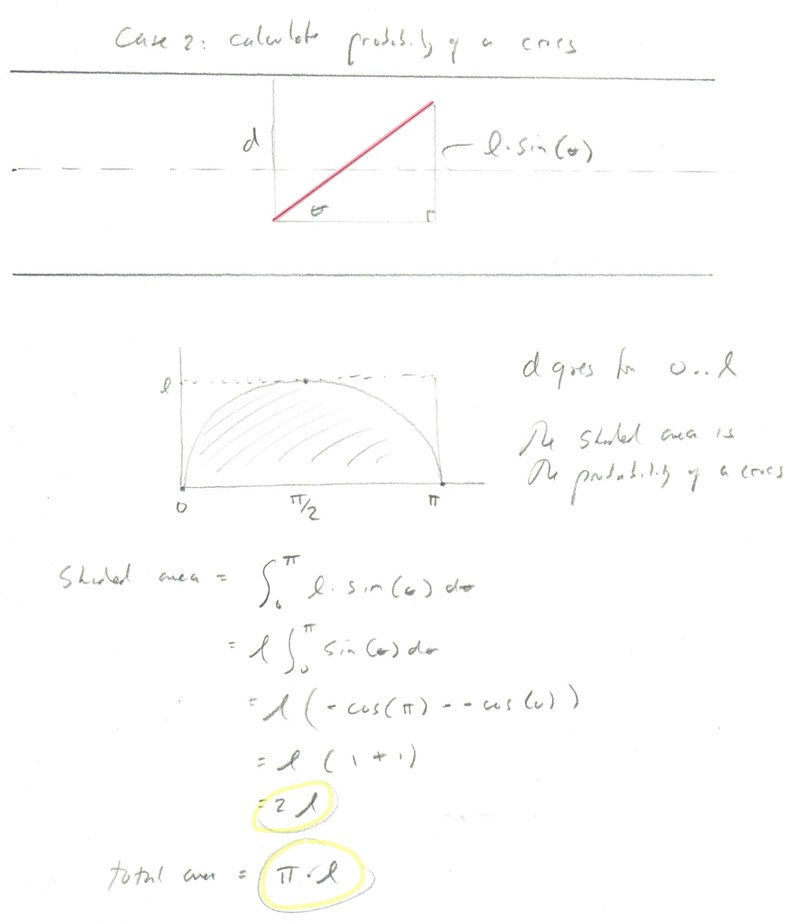 Case 2: calculate probability of a cross
d
l·sin(θ)
θ
l
d goes from 0..l
The shaded area is
the probability of a cross
0 π/2 π
Shaded area = ∫₀^π l·sin(θ) dθ
= l ∫₀^π sin(θ) dθ
= l (-cos(π) - -cos(0))
= l (1 + 1)
= 2 l
total area = π·l